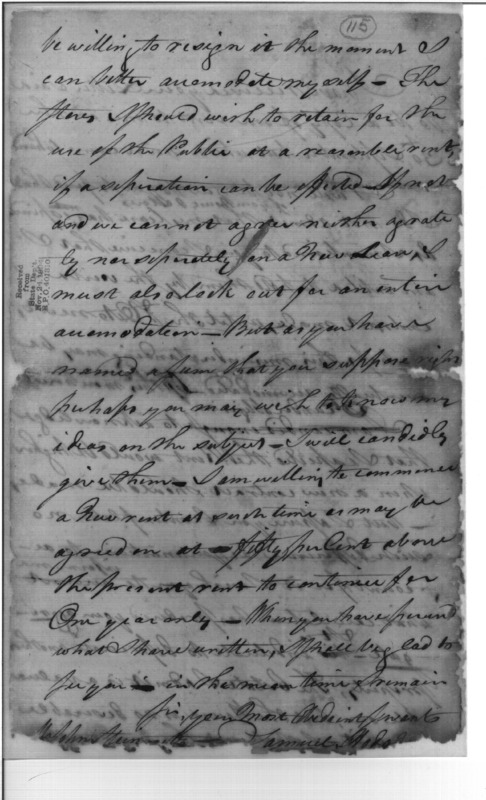 115
be willing to resign it the moment I
can better accomodate myself – The
Stores I should wish to retain for the
use of the Public at a reasonable rent,
if a seperation can be effected – If not
and we can not agree neither agrate
ly nor seperately on a New Lease, I
must also look out for an entire
accomodation – But as you have
named a sum that you suppose right
perhaps you may wish to know my
ideas on the subject – I will candidly
give them – I am willing to commence
a New rent at such time as may be
agreed on at – fifty per Cent above
the present rent to continue for
One year only – When you have perused
what I have written, I shall be glad to
see you – in the mean time I remain
Sir, your Most Obedient Servant
John
Samuel
Received
from
State Dept.